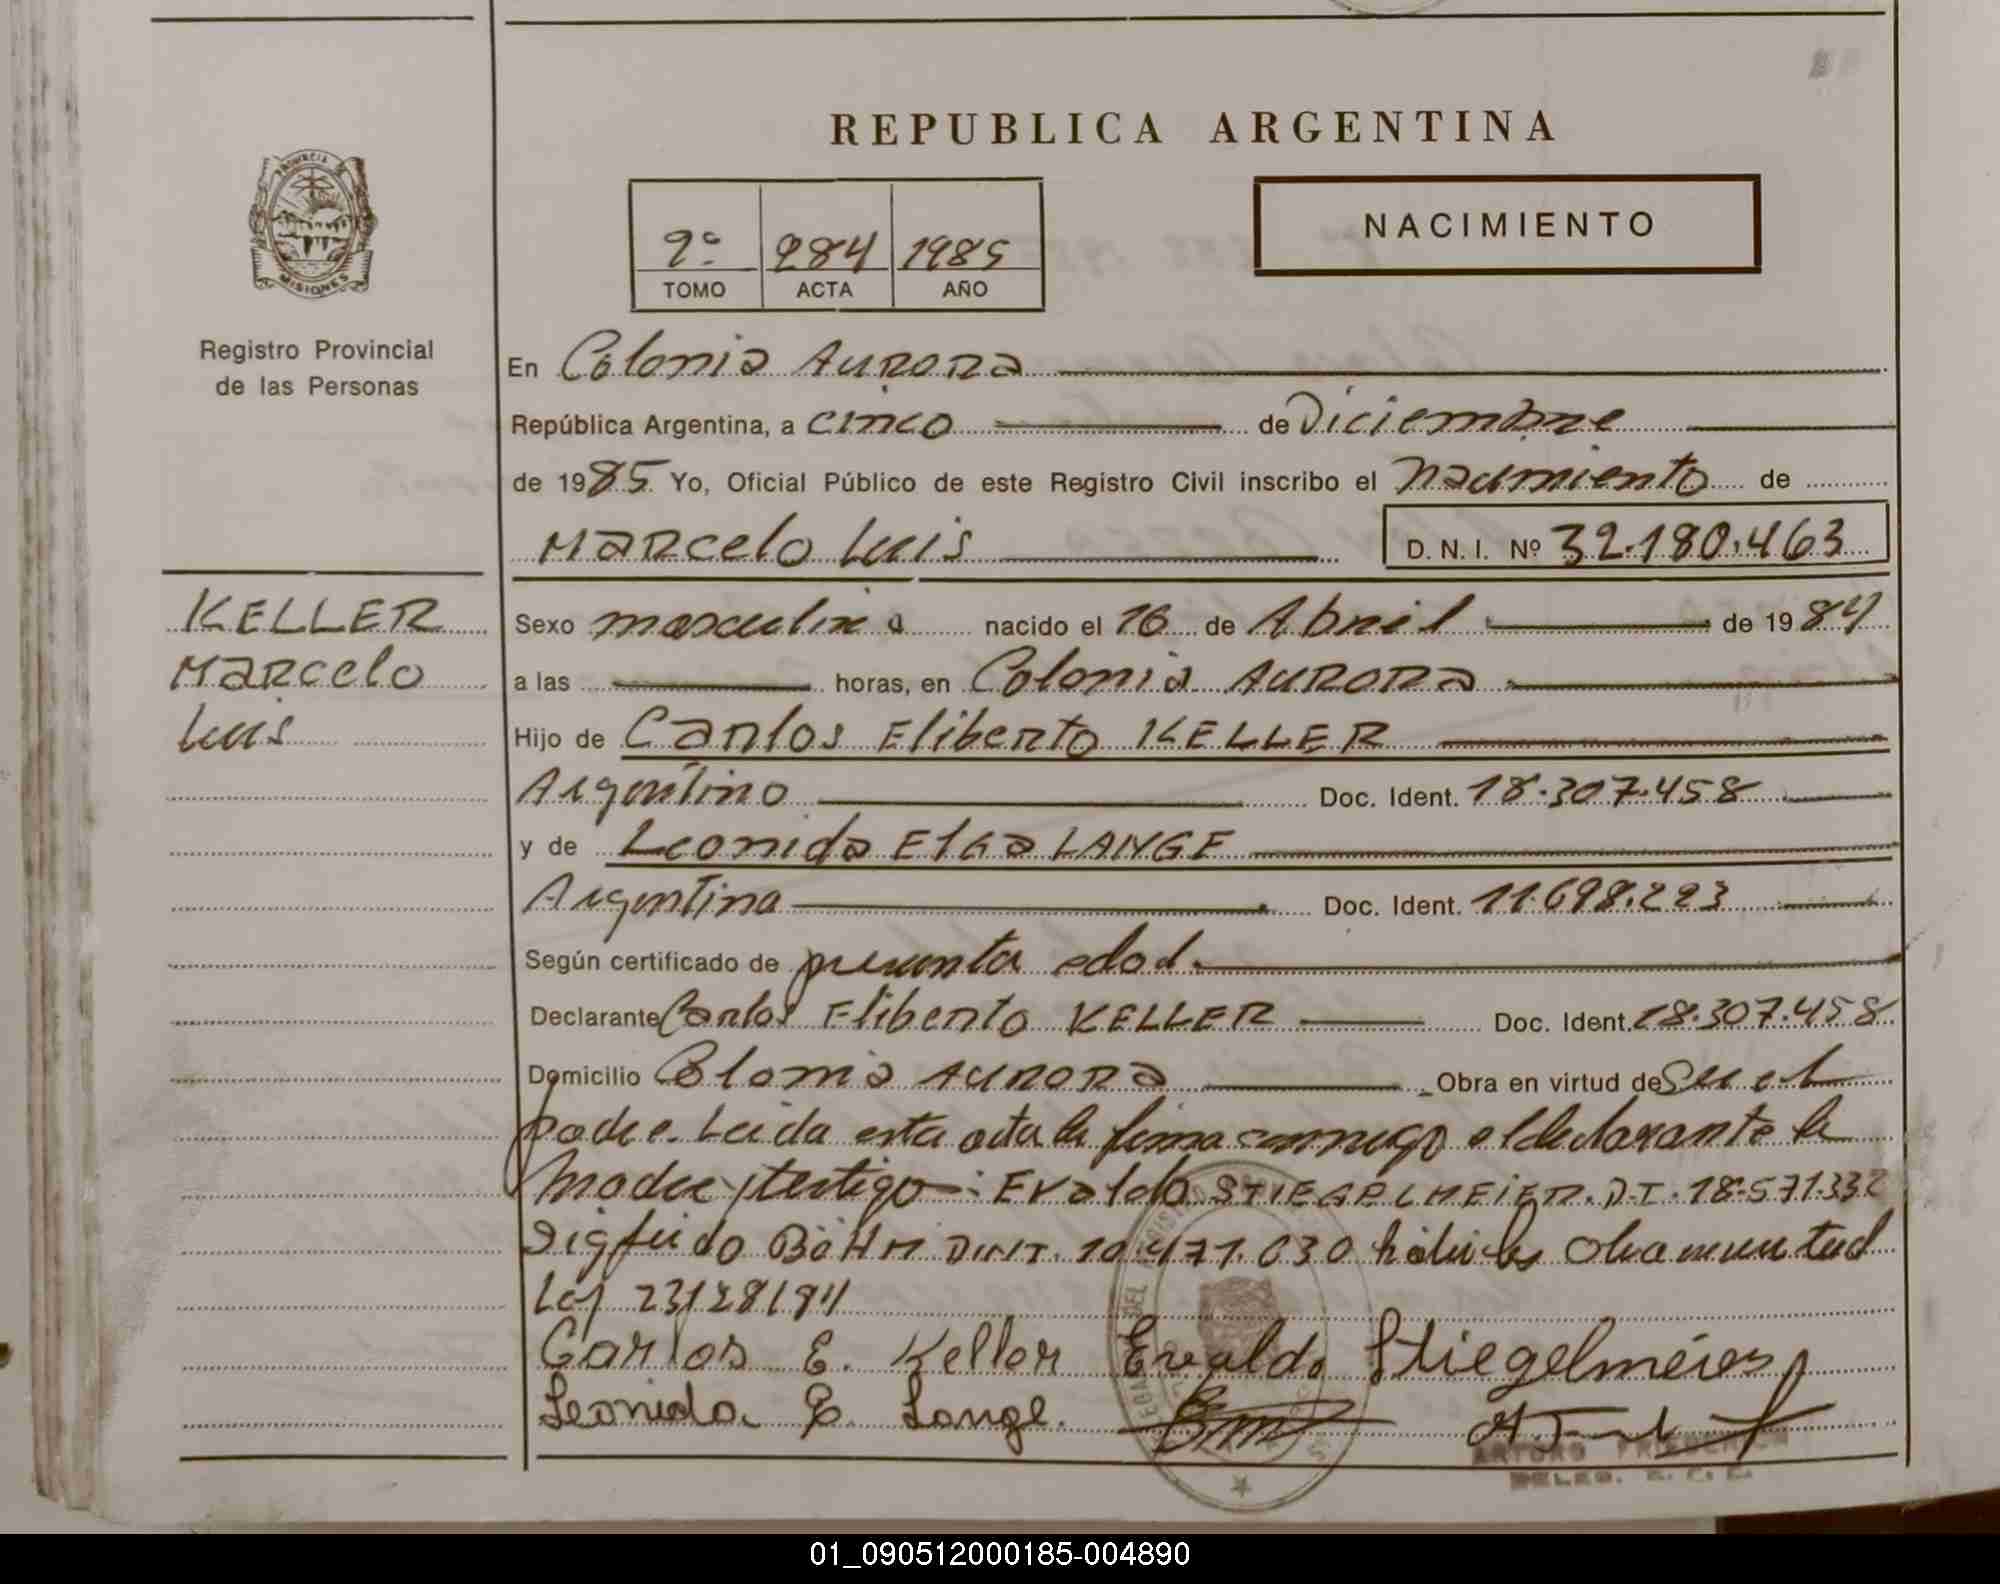 REPUBLICA ARGENTINA
NACIMIENTO
2º 284 1985
TOMO ACTA AÑO
PROVINCIA DE
MISIONES
Registro Provincial
de las Personas
KELLER
Marcelo
Luis
En Colonia Aurora
República Argentina, a cinco de Diciembre
de 1985 Yo, Oficial Público de este Registro Civil inscribo el nacimiento de
Marcelo Luis D. N. I. Nº 32.180.463
Sexo masculino nacido el 16 de Abril de 1984
a las horas, en Colonia Aurora
Hijo de Carlos Eliberto KELLER
Argentino Doc. Ident. 18.307.458
y de Leonida Elga LANGE
Argentina Doc. Ident. 11.698.223
Según certificado de presunta edad.
Declarante Carlos Eliberto KELLER Doc. Ident. 18.307.458
Domicilio Colonia Aurora Obra en virtud de Ser el
padre. Leida esta acta la firma conmigo el declarante la
madre y testigo: Evaldo STIEGELMEIER. D.I. 18.571.332
Sigfrido BÖHM DNI. 10.471.030 hábiles Obra en virtud
Ley 23128/84
Carlos E. Keller Evaldo Stiegelmeier
Leonida E. Lange.
ARTURO FRIEDERICH
DELEG. R. P. P.
01_090512000185-004890